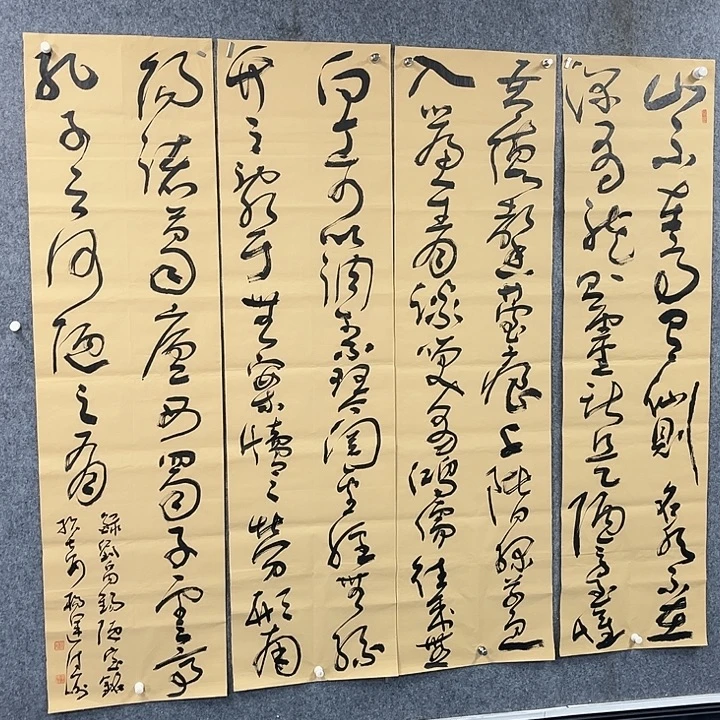 山不在高有仙則名水不在
深有龍則靈斯是陋室惟
吾德馨苔痕上階綠草色
入簾青談笑有鴻儒往來無
白丁可以調素琴閱金經無絲
竹之亂耳無案牘之勞形南
陽諸葛廬西蜀子雲亭
孔子云何陋之有
錄劉禹錫陋室銘